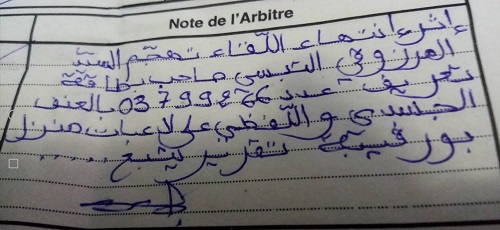 Note de l'Arbitre
إثر انتهاء اللقاء تهجم السيد
المرزوقي التبسي صاحب بطاقة
تعريف عدد 03799266 بالعنف
الجسدي واللفظي على لاعبات منزل
بورقيبة تقرير يتبع